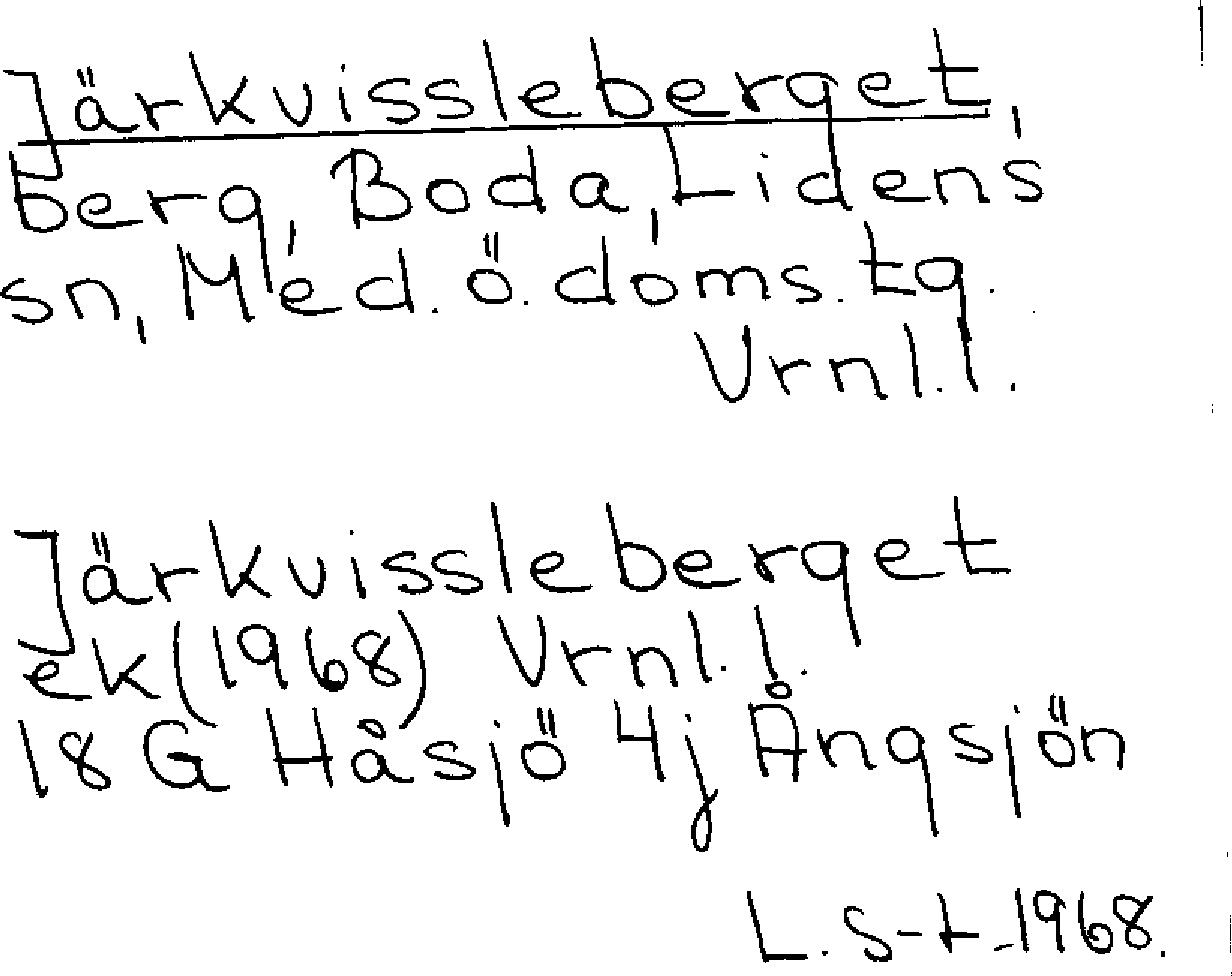 Järkvissleberget,
berg, Boda, Lidens
sn, Med. ö. doms. tg.
Vrnl. l.
Järkvissleberget
ek (1968) Vrnl. l.
18 G Håsjö 4j Ångsjön
L. S-t 1968.